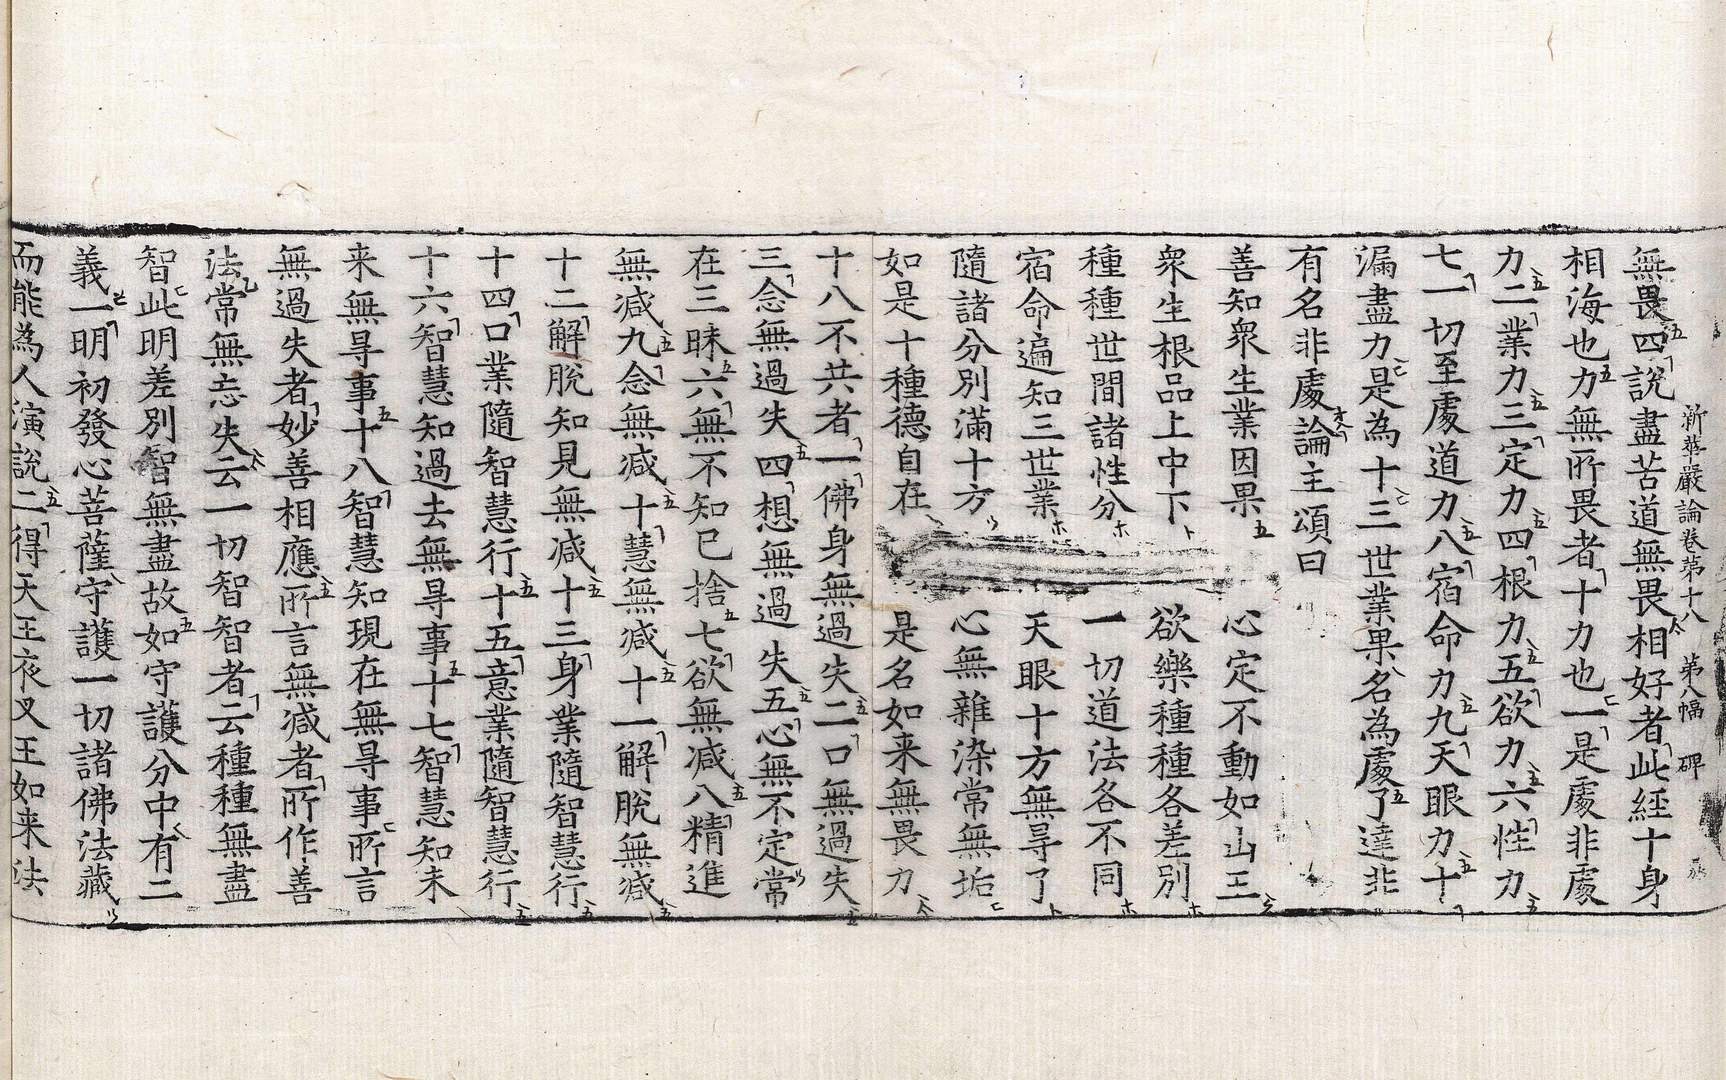 新華嚴論卷第十八 第八幅 碑
無畏四說盡苦道無畏相好者此經十身
相海也力無所畏者十力也一是處非處
力二業力三定力四根力五欲力六性力
七一切至處道力八宿命力九天眼力十
漏盡力是為十三世業果名為處了達非
有名非處論主頌曰
善知衆生業因果 心定不動如山王
衆生根品上中下 欲樂種種各差別
種種世間諸性分 一切道法各不同
宿命遍知三世業 天眼十方無㝵了
隨諸分別滿十方 心無雜染常無垢
如是十種德自在 是名如来無畏力
十八不共者一佛身無過失二口無過失
三念無過失四想無過失五心無不定常
在三昧六無不知已捨七欲無減八精進
無減九念無減十慧無減十一解脫無減
十二解脫知見無減十三身業隨智慧行
十四口業隨智慧行十五意業隨智慧行
十六智慧知過去無㝵事十七智慧知未
来無㝵事十八智慧知現在無㝵事所言
無過失者妙善相應所言無減者所作善
法常無忘失云一切智智者云種種無盡
智此明差別智無盡故如守護分中有二
義一明初發心菩薩守護一切諸佛法藏
而能為人演說二得天王夜叉王如来法